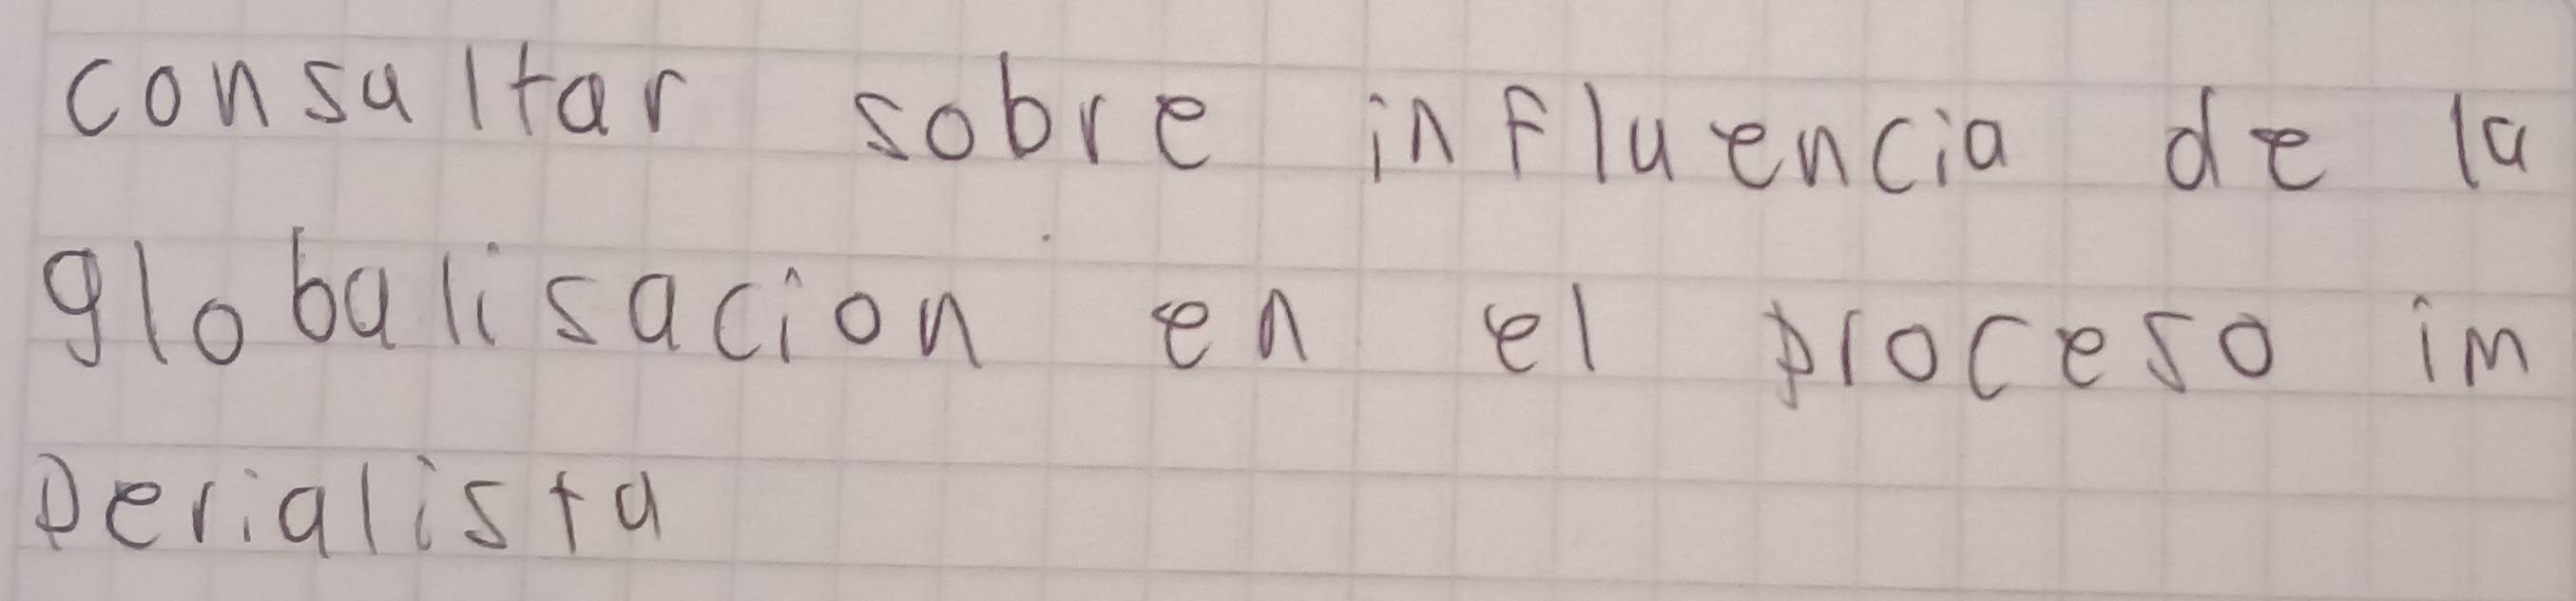 consultar sobre influencia de la
globalisacion en el proceso im
perialista